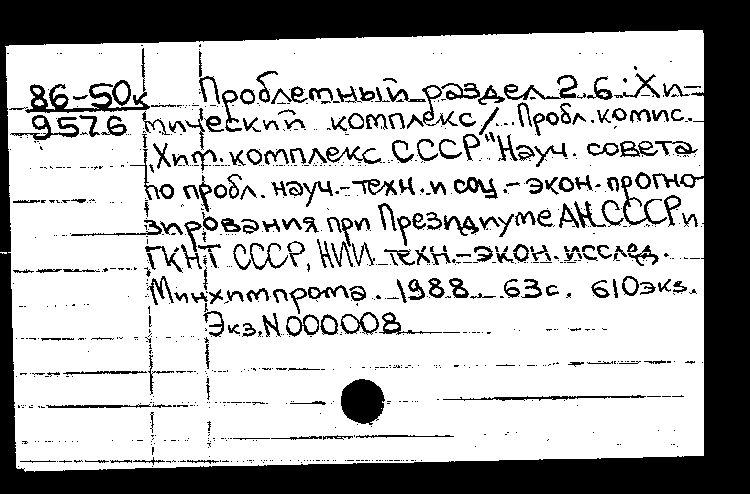 86-50к Проблемный раздел 2.6: Хи-
9576 мический комплекс / Пробл. комис.
"Хим. комплекс СССР" Науч. совета
по пробл. науч.-техн. и соц.-экон. прогно-
зирования при Президиуме АН СССР и
ГКНТ СССР, НИИ техн.-экон. исслед.
Минхимпрома. 1988. 63с. 610экз.
Экз. N000008.